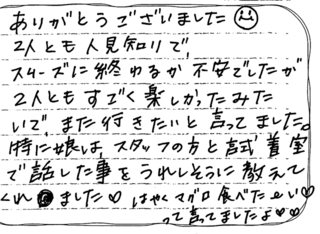 ありがとうございました☺
2人とも人見知りで、
スムーズに終わるか不安でしたが
2人ともすごく楽しかったみた
いで、また行きたいと言ってました。
特に娘は、スタッフの方と試着室
で話した事をうれしそうに教えて
くれました♡ はやくマグロ食べたーい♡
って言ってましたよ♡♡